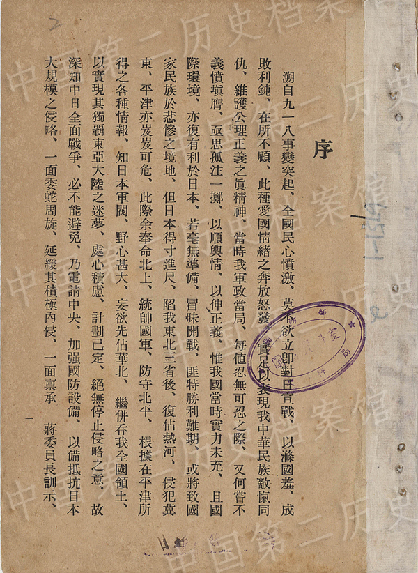 序
溯自九一八事變突起、全國民心憤激、莫不欲立即對日宣戰、以滌國恥、成
敗利鈍、在所不顧、此種愛國情緒之奔放怒發、實足以表現我中華民族敵愾同
仇、維護公理正義之眞精神、當時我軍政當局、每値忍無可忍之際、又何嘗不
義憤塡膺、亟思孤注一擲、以順輿情、以伸正義、惟我國當時實力未充、且國
際環境、亦復有利於日本、若毫無準備、冒昧開戰、匪特勝利難期、或將致國
家民族於悲慘之境地、但日本得寸進尺、陷我東北三省後、復佔熱河、侵犯冀
東、平津亦岌岌可危、此際余奉命北上、統帥國軍、防守北平、根據在平津所
得之各種情報、知日本軍閥、野心甚大、妄欲先佔華北、繼併吞我全國領土、
以實現其獨霸東亞大陸之迷夢、處心積慮、計劃已定、絕無停止侵略之意、故
深知中日全面戰爭、必不能避免、乃電請中央、加强國防設備、以備抵抗日本
大規模之侵略、一面委蛇周旋、延緩其積極內侵、一面稟承 蔣委員長訓示、
中国第二历史档案馆